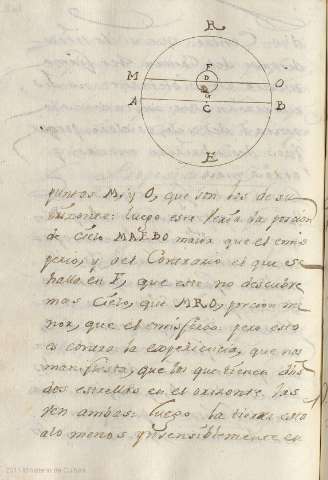 R
F
M D O
A G B
C
E
puntos M, y O, que son los de su
orizonte: luego este berà la porcion
de cielo MAEBO maior que el emis
ferio; y del Contrario el que se
halla en F, que este no descubre
mas Cielo, que MRO, porcion me
nor, que el emisferio. pero esto
es contra la experiencia, que nos
manifiesta, que los que tienen dos
estrellas en el orizonte, las
ven ambas: luego la tierra està
alo menos ynsensiblemente en
2011 Ministerio de Cultura